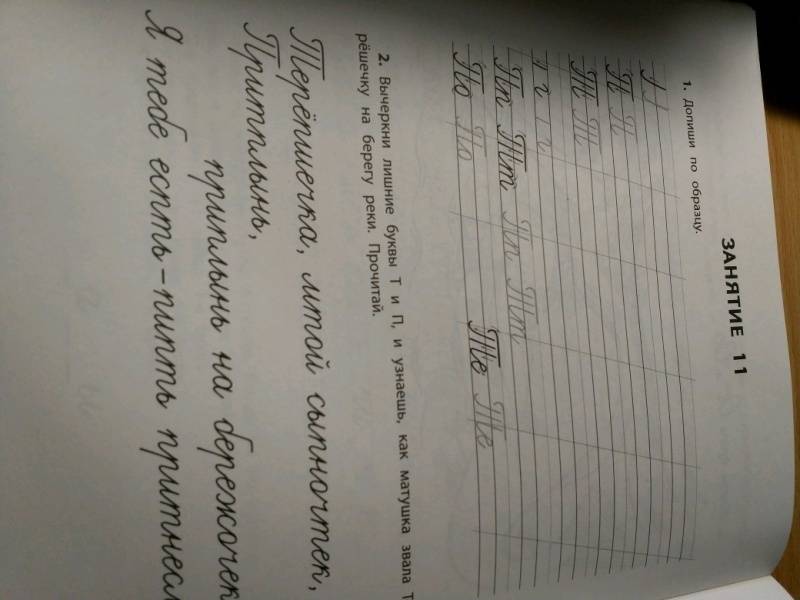 ЗАНЯТИЕ 11
1. Допиши по образцу.
П П
Т Т
г г г
Пп Тт Пп Тт
По По Те Те
2. Вычеркни лишние буквы Т и П, и узнаешь, как матушка звала Т
рёшечку на берегу реки. Прочитай.
Терёпшечка, мтой сыпночтек,
Притплынь,
приплынь на бережочек
Я тебе еспть-пипть